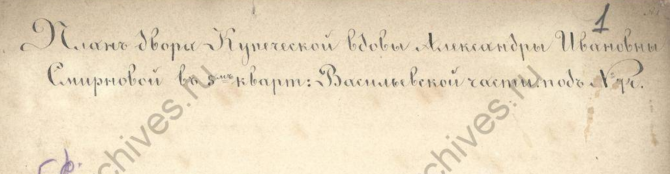 1
Планъ двора Купеческой вдовы Александры Ивановны
Смирновой въ 5мъ кварт: Васильевской части подъ №
chives.ru
chives.ru